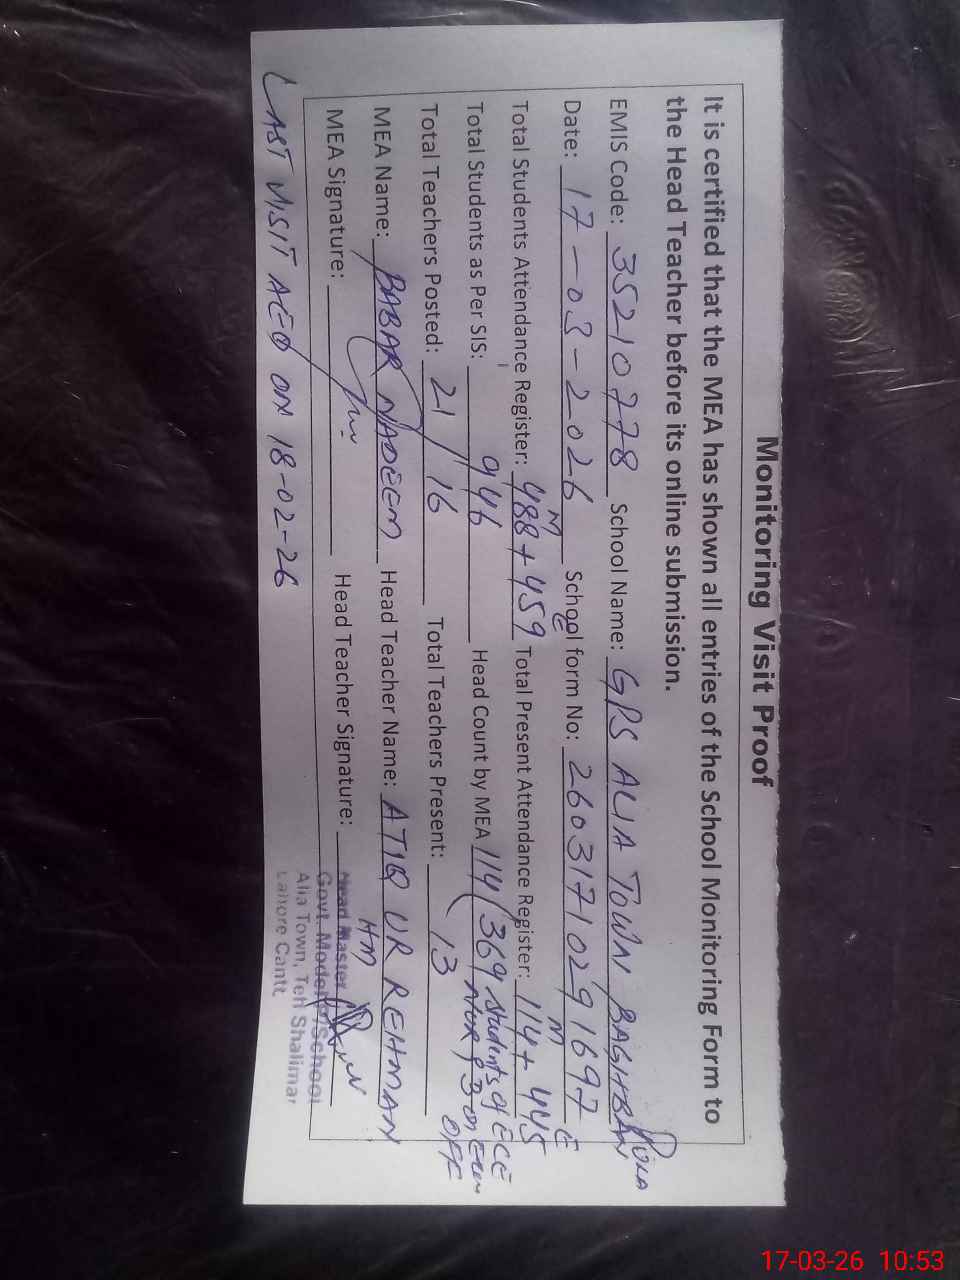 Monitoring Visit Proof
It is certified that the MEA has shown all entries of the School Monitoring Form to
the Head Teacher before its online submission.
EMIS Code: 35210778 School Name: GPS ALIA TOWN BAGHBAN PURA
Date: 17-03-2026 School form No: 26031710291697
M E M E
Total Students Attendance Register: 488+459 Total Present Attendance Register: 114+445
Total Students as Per SIS: 946 Head Count by MEA 114 (369 students of ECE
NUR, 3 on
OFF
Total Teachers Posted: 21/16 Total Teachers Present: 13
MEA Name: BABAR NADEEM Head Teacher Name: ATIQ UR REHMAN
HM
MEA Signature: Head Teacher Signature:
Head Master
Govt. Model School
Alia Town, Teh Shalimar
Lahore Cantt
LAST VISIT AEO ON 18-02-26
17-03-26 10:53